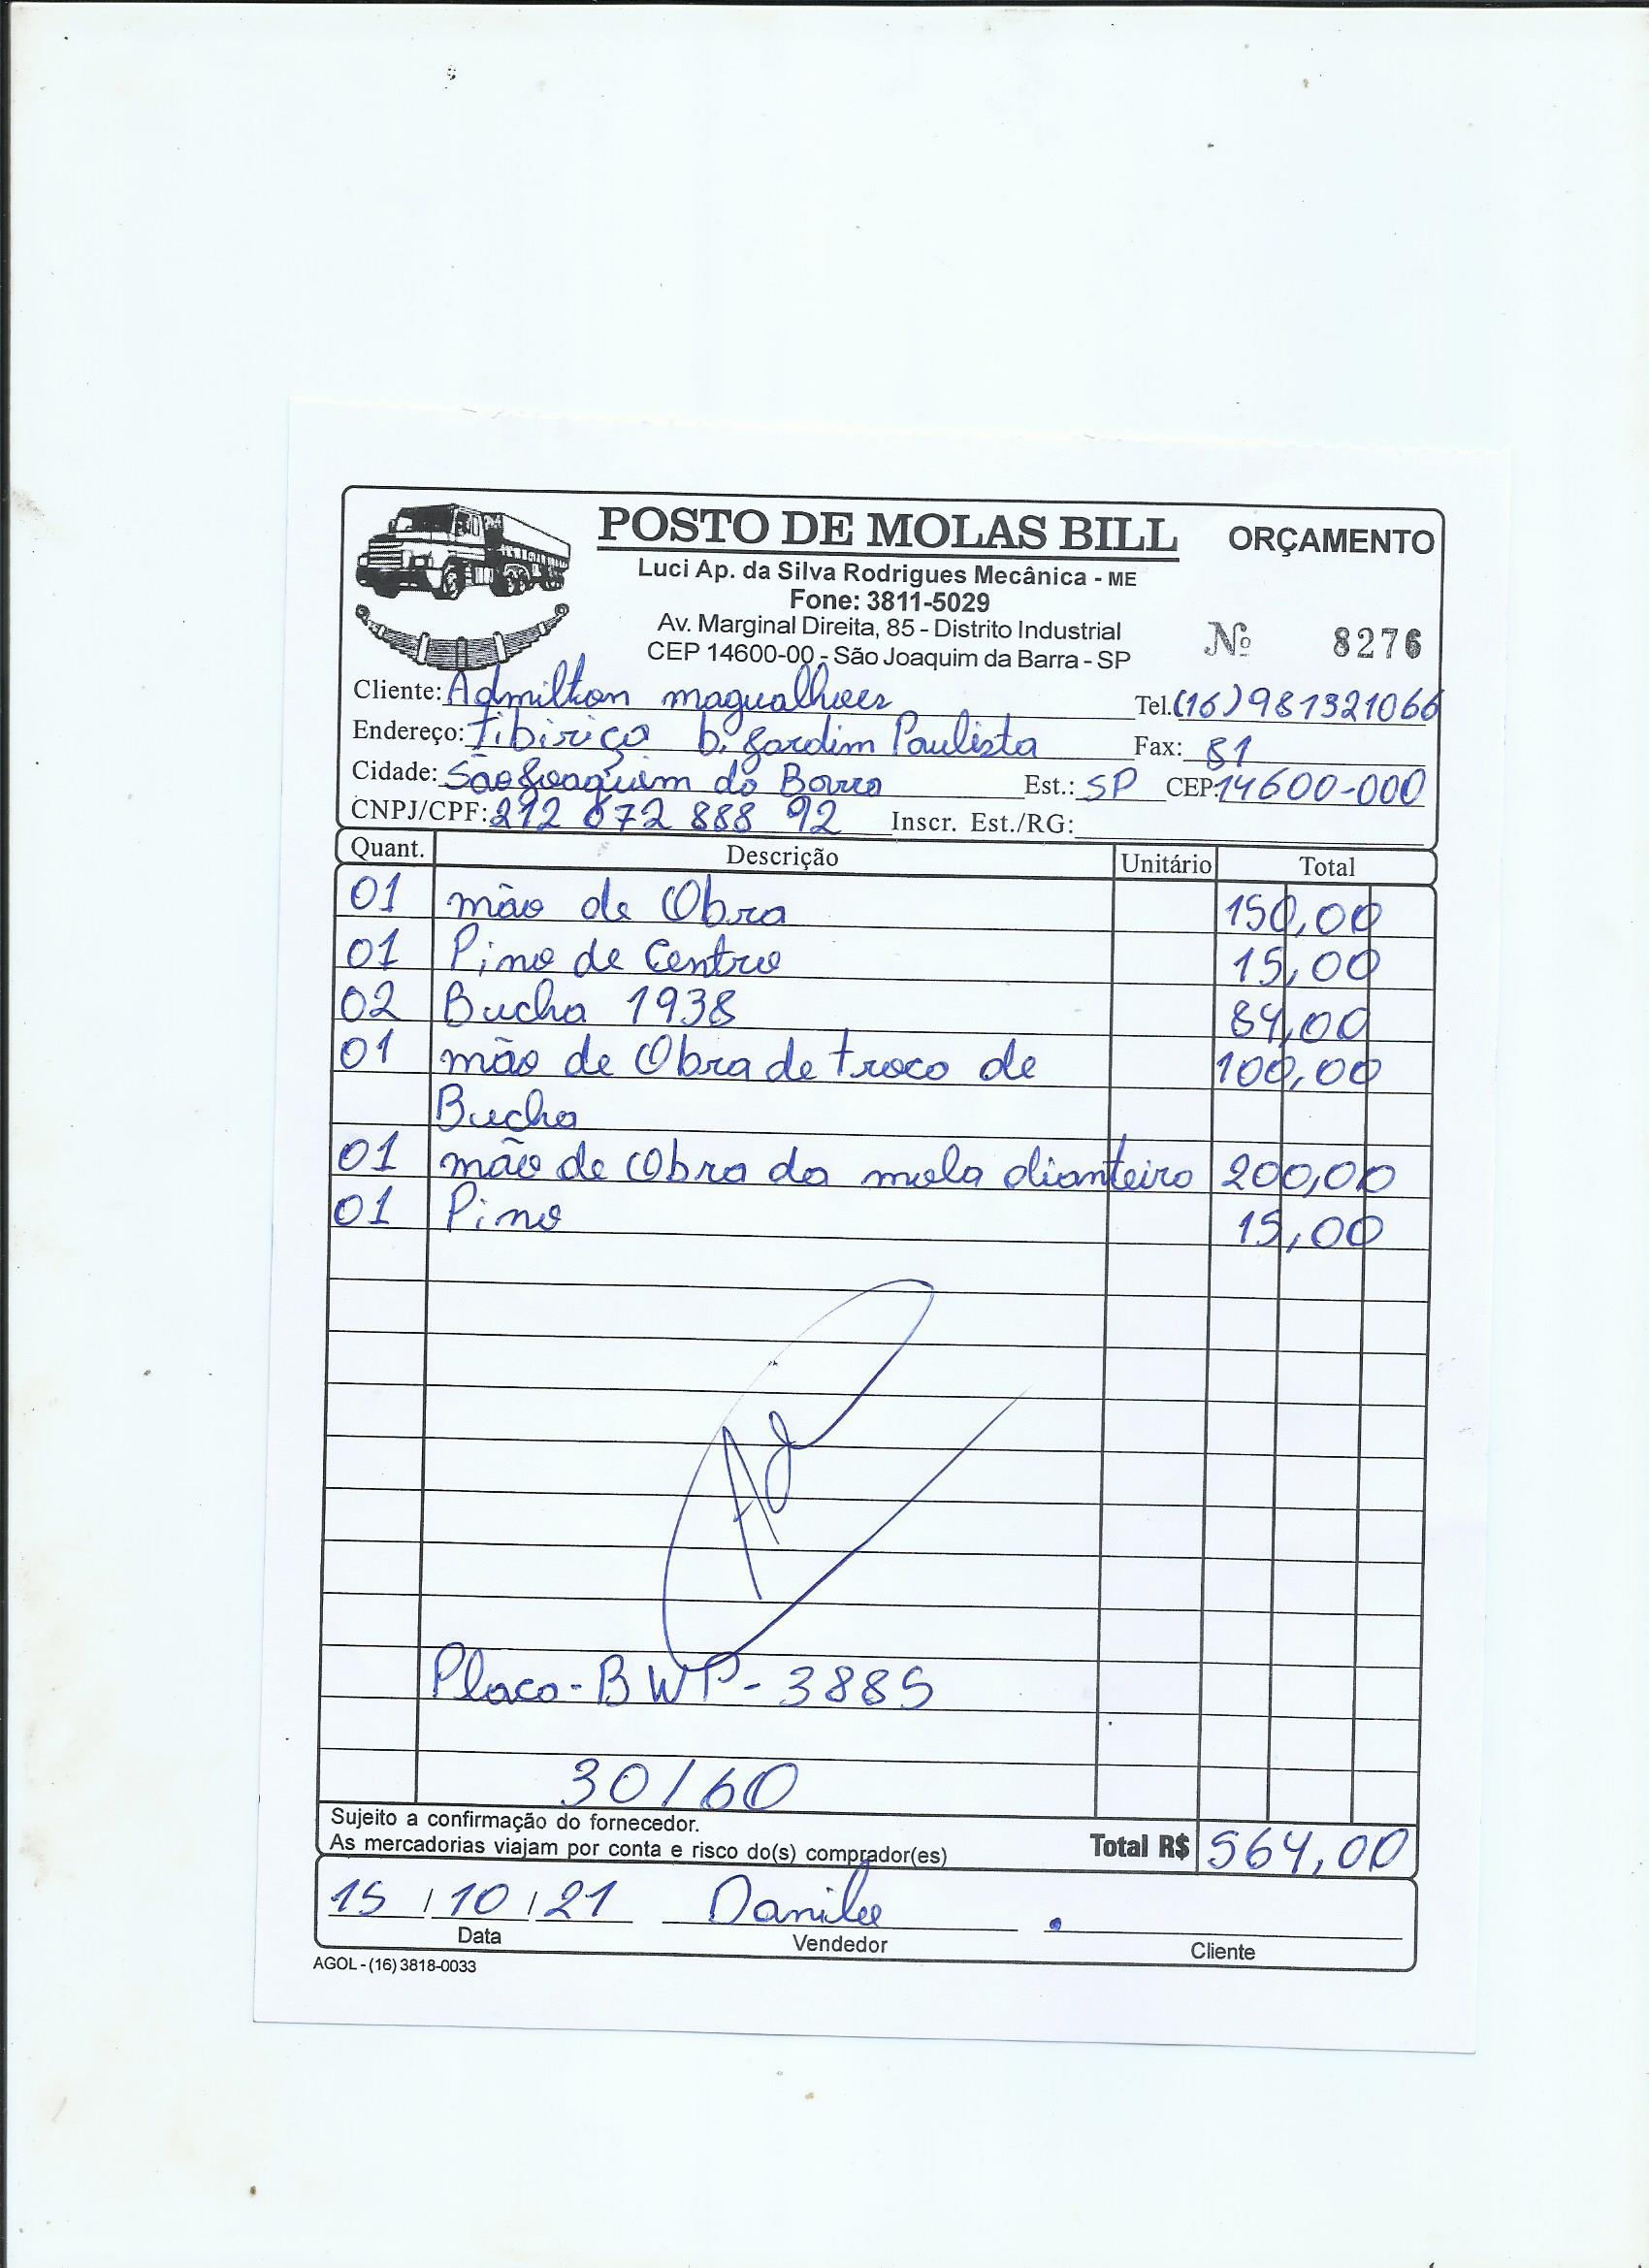 POSTO DE MOLAS BILL ORÇAMENTO
Luci Ap. da Silva Rodrigues Mecânica - ME
Fone: 3811-5029
Av. Marginal Direita, 85 - Distrito Industrial
CEP 14600-00 - São Joaquim da Barra - SP
Nº 8276
Cliente: Admilton magualhaes Tel. (16) 981321066
Endereço: Tibiriça b. Jardim Paulista Fax: 81
Cidade: São Joaquim da Barra Est.: SP CEP: 14600-000
CNPJ/CPF: 212 672 888 92 Inscr. Est./RG:
Quant. Descrição Unitário Total
01 mão de Obra 150,00
01 Pino de Centro 15,00
02 Bucha 1938 84,00
01 mão de Obra de troca de 100,00
Bucha
01 mão de Obra da mola dianteira 200,00
01 Pino 15,00
Placa - BWP - 3885
30/60
Sujeito a confirmação do fornecedor.
As mercadorias viajam por conta e risco do(s) comprador(es)
Total R$ 564,00
15 / 10 / 21 Danilo
Data Vendedor Cliente
AGOL - (16) 3818-0033